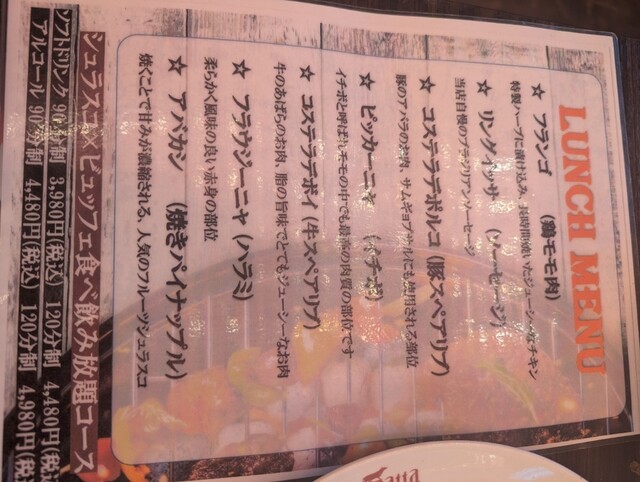 LUNCH MENU
☆ フランゴ (鶏モモ肉)
特製ハーブに漬け込み、長時間焼いたジューシーなチキン
☆ リングイッサ (ソーセージ)
当店自慢のブラジリアンソーセージ
☆ コステラデポルコ (豚スペアリブ)
豚のアバラのお肉、サムギョプサルにも使用される部位
☆ ピッカーニャ (イチボ)
イチボと呼ばれモモの中でも最高の肉質の部位です
☆ コステラデボイ (牛スペアリブ)
牛のあばらのお肉、脂の旨味でとてもジューシーなお肉
☆ フラウジーニャ (ハラミ)
柔らかく風味の良い赤身の部位
☆ アバカシ (焼きパイナップル)
焼くことで甘みが濃縮される、人気のフルーツシュラスコ
シュラスコ×ビュッフェ食べ飲み放題コース
ソフトドリンク 90分制 3,980円(税込) 120分制 4,480円(税込
アルコール 90分制 4,480円(税込) 120分制 4,980円(税込